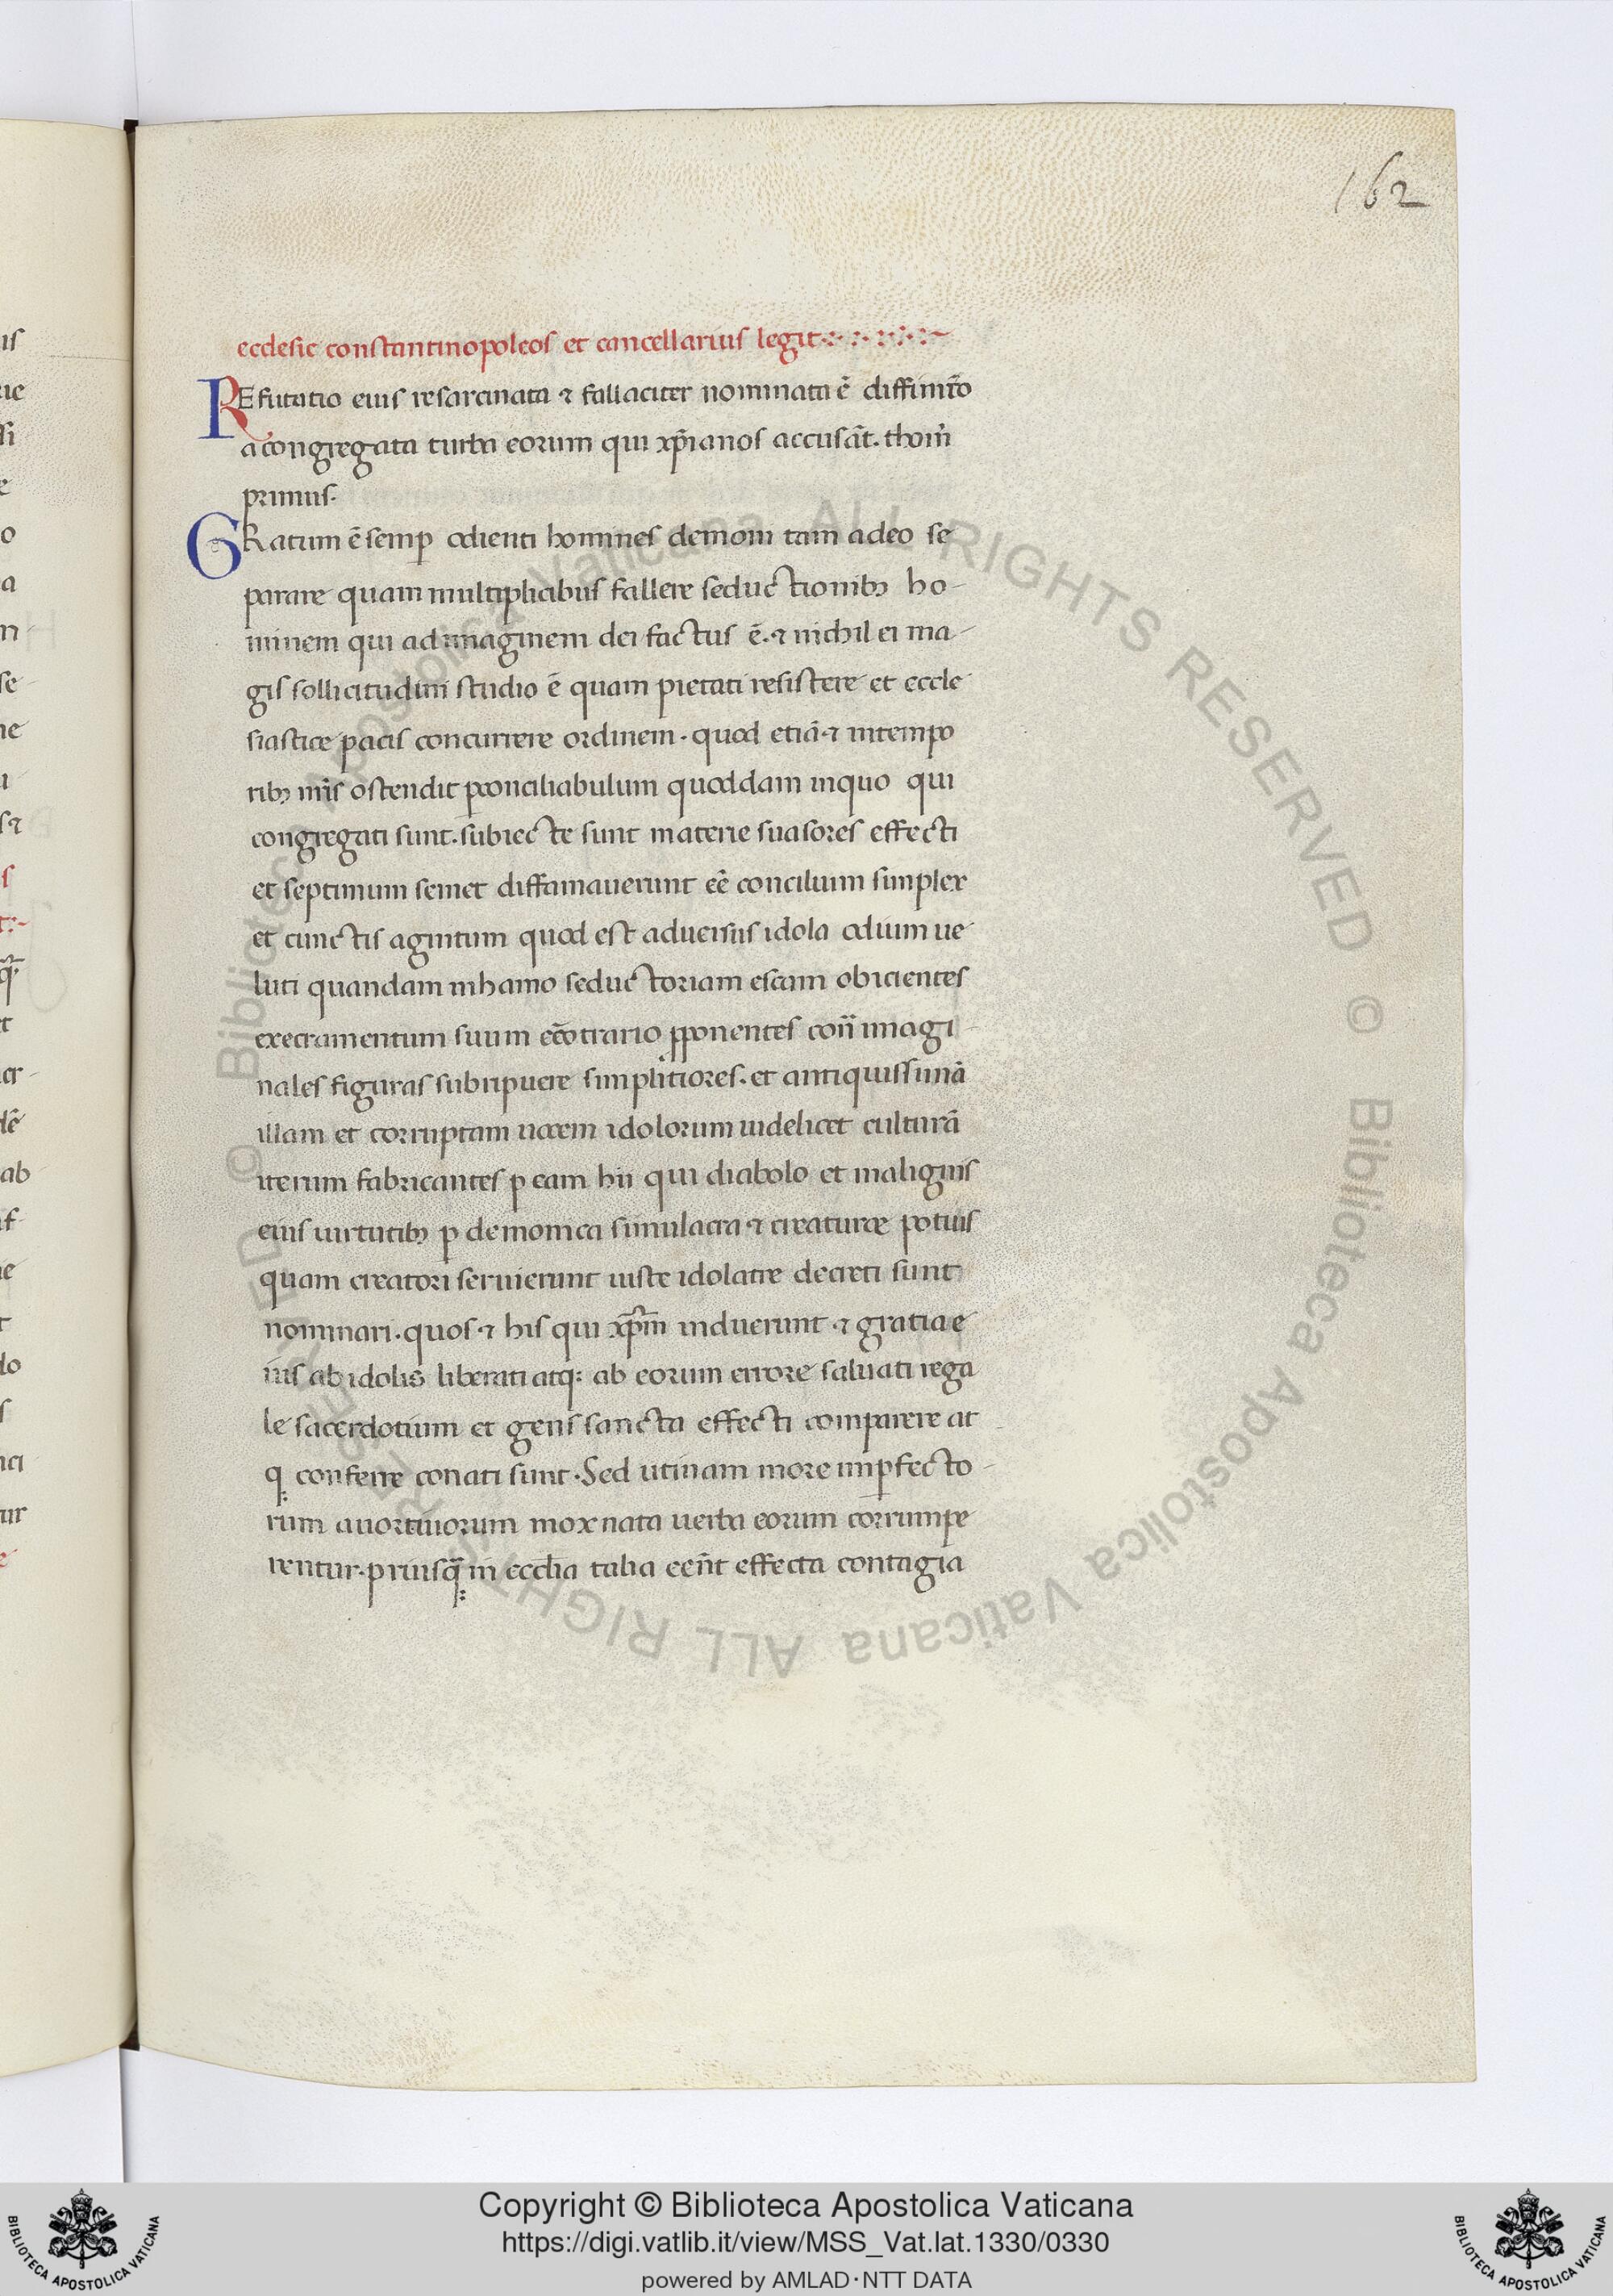 162
ecclesie constantinopoleos et cancellarius legit
REfutatio eius resarcinata ⁊ fallaciter nominata ē diffinit̄o
a congregata turba eorum qui xp̄ianos accusāt. thom̄
primus.
GRatum ē semꝑ odienti homines demoni tam adeo se
parare quam multiplicibus fallere seductionibꝫ ho-
minem qui ad imaginem dei factus ē. ⁊ nichil ei ma-
gis sollicitudini studio ē quam pietati resistere et eccle
siastice pacis concurrere ordinem. quod etiā ⁊ in tempo
ribꝫ nr̄is ostendit ꝑconciliabulum quoddam inquo qui
congregati sunt. subiecte sunt materie suasores effecti
et septimum semet diffamauerunt eē concilium simplex
et cunctis agnitum quod est aduersus idola odium ue
luti quandam inhamo seductoriam escam obicientes
execramentum suum ecōtrario ꝓponentes imagi-
nales figuras subripuere simplitiores. et antiquissimā
illam et corruptam uocem idolorum uidelicet culturā
iterum fabricantes ꝑ eam hii qui diabolo et malignis
eius uirtutibꝫ ꝑ demonica simulacra ⁊ creature potius
quam creatori seruierunt iuste idolatre decreti sunt
nominari. quos ⁊ his qui xp̄m induerunt ⁊ gratia e
ius ab idolis liberati atq: ab eorum errore saluati rega
le sacerdotium et gens sancta effecti comparere at
q: conferre conati sunt. Sed utinam more imꝑfecto-
rum auortiuorum mox nata uerba eorum corrumpe
rentur. priusq̄ in eccl̄ia talia eēnt effecta contagia
is
ue
o
a
n
se-
ne
Copyright © Biblioteca Apostolica Vaticana
https://digi.vatlib.it/view/MSS_Vat.lat.1330/0330
powered by AMLAD·NTT DATA
BIBLIOTECA APOSTOLICA VATICANA
BIBLIOTECA APOSTOLICA VATICANA
© Biblioteca Apostolica Vaticana ALL RIGHTS RESERVED © Biblioteca Apostolica Vaticana ALL RIGHTS RESERVED